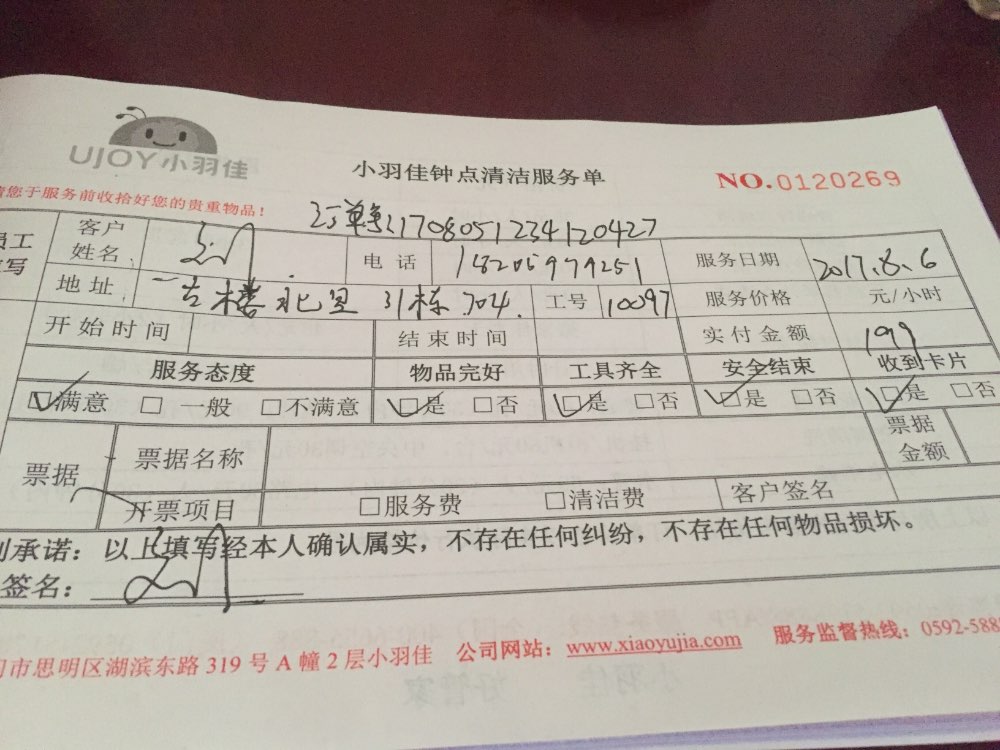 UJOY小羽佳
小羽佳钟点清洁服务单
NO.0120269
请您于服务前收拾好您的贵重物品！
订单号2170805123412042​7
员工
填写
客户
姓名
电话 18205979251
服务日期 2017.8.6
地址 古楼北里 31栋 704
工号 10097
服务价格 元/小时
开始时间
结束时间
实付金额 199
服务态度 物品完好 工具齐全 安全结束 收到卡片
☑满意 □一般 □不满意 ☑是 □否 ☑是 □否 ☑是 □否 ☑是 □否
票据
票据名称
票据
金额
开票项目 □服务费 □清洁费 客户签名
承诺：以上填写经本人确认属实，不存在任何纠纷，不存在任何物品损坏。
签名：
市思明区湖滨东路 319 号 A 幢 2 层小羽佳 公司网站：www.xiaoyujia.com 服务监督热线：0592-5885